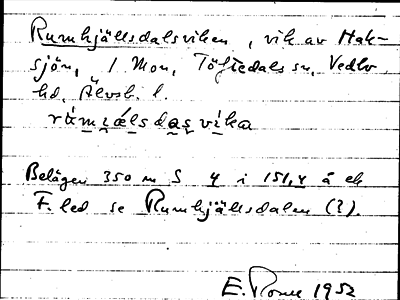 Rumhjällsdalsviken, vik av Hak-
sjön, 1 Mon, Töftedals sn, Vedbo
hd, Älvsb. l.
Belägen 350 m S 4 i 151,4 å ek
F. led se Rumhjällsdalen (?).
E. 1952